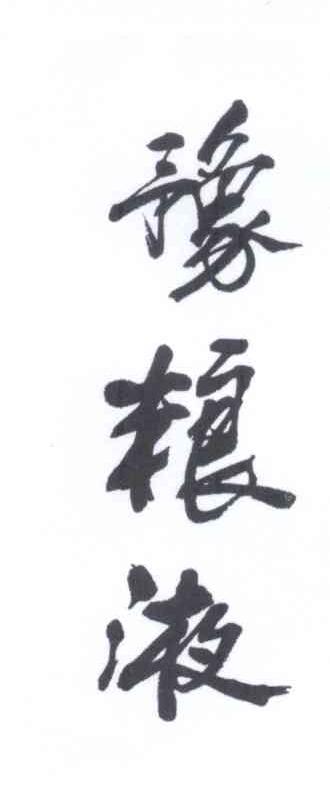 豫粮液